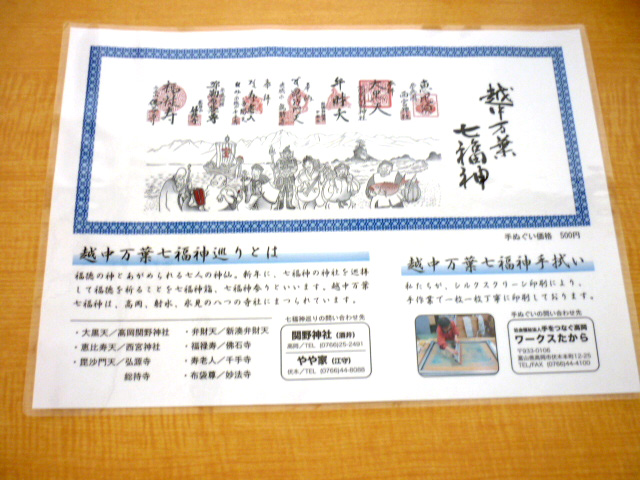 越中万葉
七福神
弁財天
手ぬぐい価格 500円
越中万葉七福神巡りとは
福徳の神とあがめられる七人の神仙。新年に、七福神の神社を巡拝
して福徳を祈ることを七福神詣、七福神参りといいます。越中万葉
七福神は、高岡、射水、氷見の八つの寺社にまつられています。
・大黒天／高岡関野神社
・恵比寿天／西宮神社
・毘沙門天／弘源寺
総持寺
・弁財天／新湊弁財天
・福禄寿／佛石寺
・寿老人／千手寺
・布袋尊／妙法寺
七福神巡りの問い合わせ先
関野神社（酒井）
高岡／TEL (0766)25-2491
やや家（江守）
伏木／TEL (0766)44-8088
越中万葉七福神手拭い
私たちが、シルクスクリーン印刷により、
手作業で一枚一枚丁寧に印刷しております。
手ぬぐいの問い合わせ先
社会福祉法人 手をつなぐ高岡
ワークスたから
〒933-0106
富山県高岡市伏木本町12-25
TEL/FAX (0766)44-4100